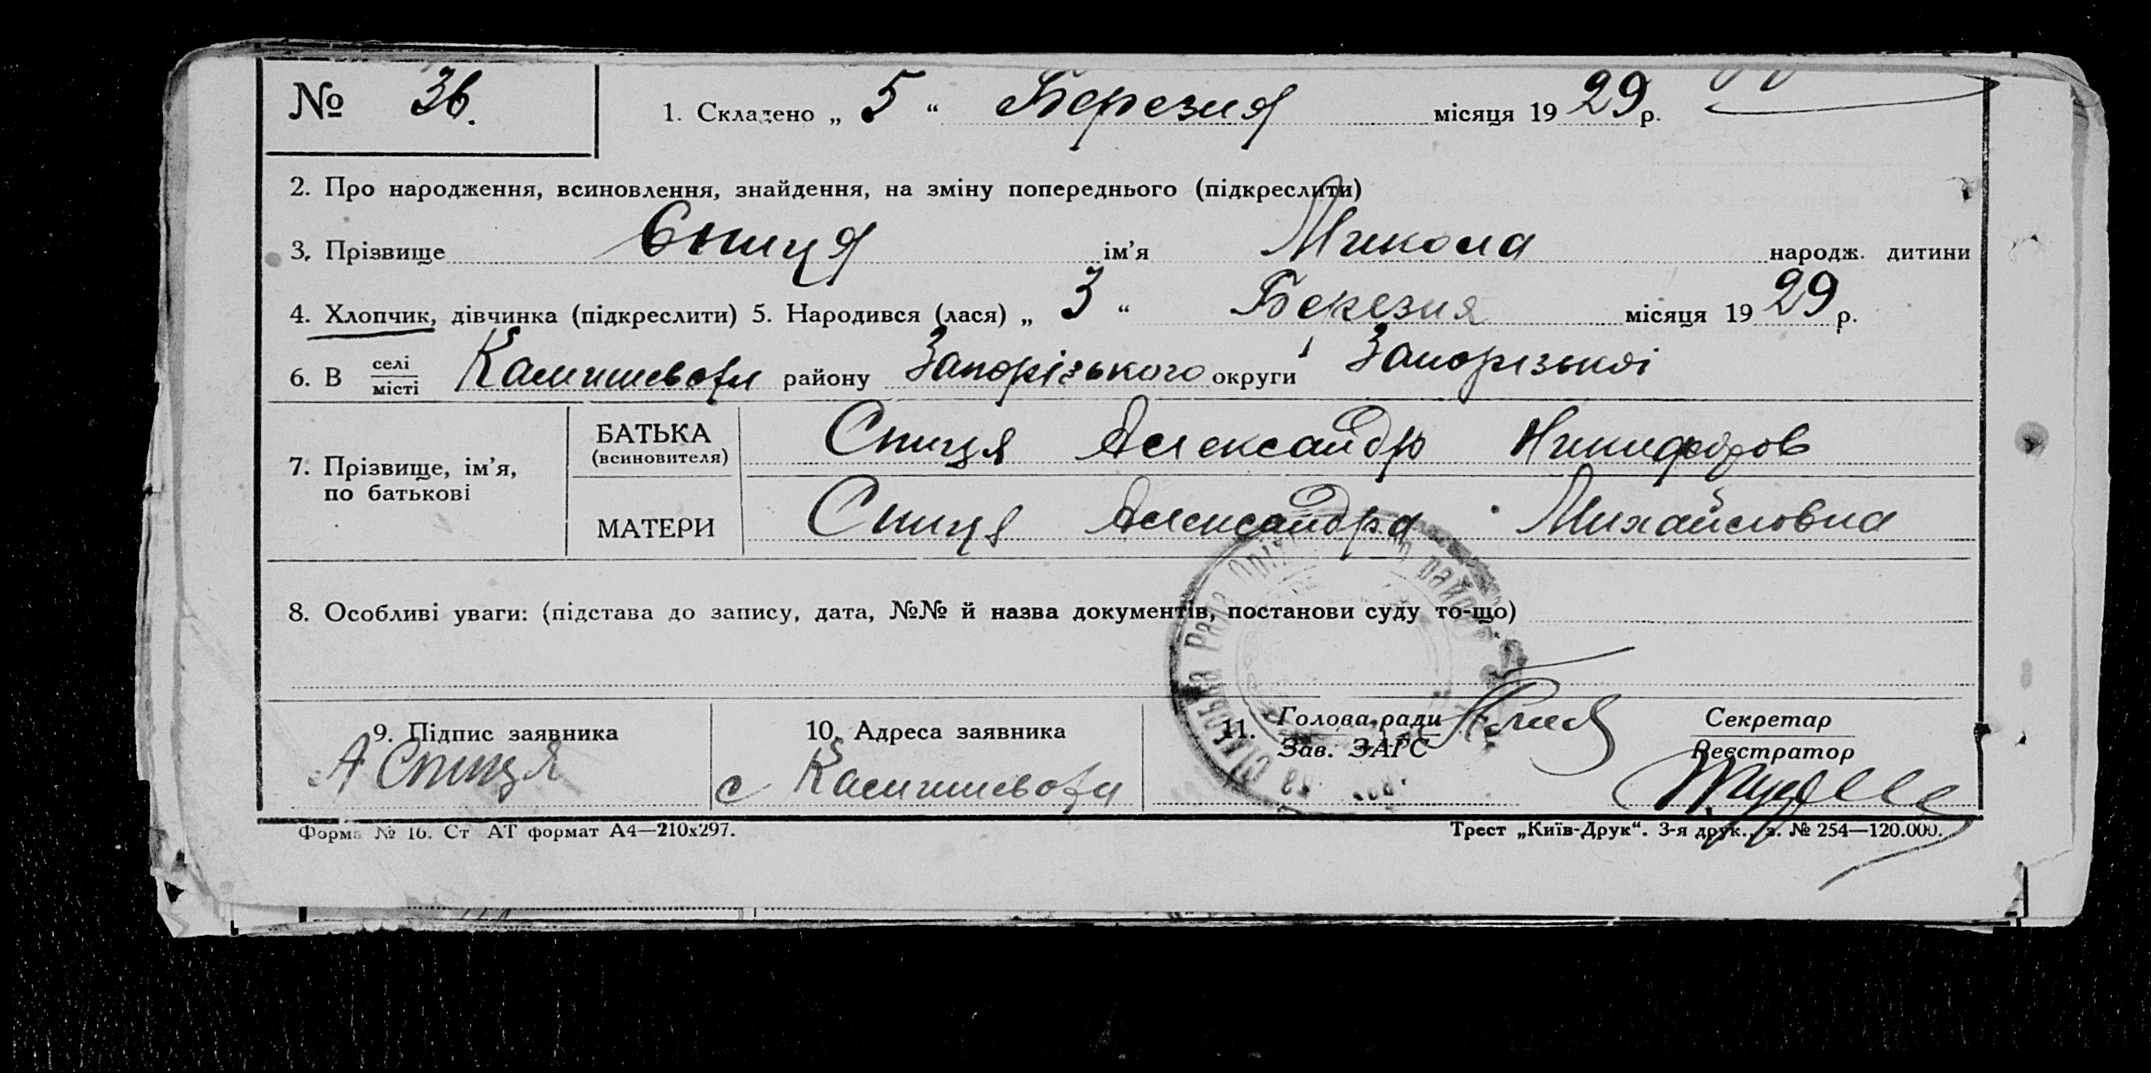 № 36. 1. Складено „ 5 “ Березня місяця 1929 р.
2. Про народження, всиновлення, знайдення, на зміну попереднього (підкреслити)
3. Прізвище Спиця ім’я Микола народж. дитини
4. Хлопчик, дівчинка (підкреслити) 5. Народився (лася) „ 3 “ Березня місяця 1929 р.
6. В селі
місті Камишеваси району Запорізького округи Запорізької
7. Прізвище, ім’я,
по батькові
БАТЬКА
(всиновителя)
Спиця Александр Никифоров
МАТЕРИ Спиця Александра Михайловна
8. Особливі уваги: (підстава до запису, дата, №№ й назва документів, постанови суду то-що)
9. Підпис заявника
А Спиця
10. Адреса заявника
с Камишеваси
11. Голова ради
Зав. ЗАГС
Секретар
Реєстратор
Форма № 16. Ст АТ формат А4—210x297.
Трест „Київ-Друк“. 3-я друк., з. № 254—120.000.